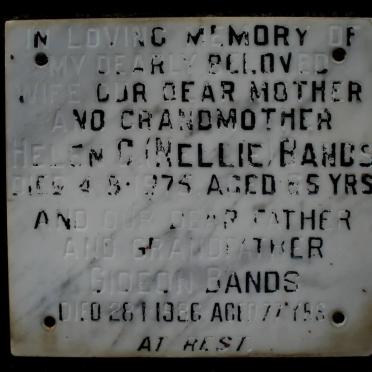 IN LOVING MEMORY OF
MY DEARLY BELOVED
WIFE OUR DEAR MOTHER
AND GRANDMOTHER
HELEN G (NELLIE) BANDS
DIED 4 8 1975 AGED 65 YRS
AND OUR DEAR FATHER
AND GRANDFATHER
GIDEON BANDS
DIED 28 1 1986 AGED 77 YRS
AT REST